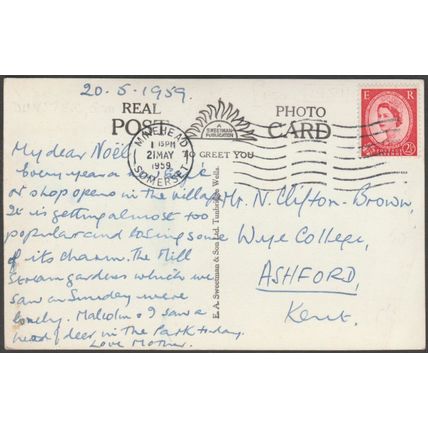 20.5.1959.
REAL PHOTO
POST CARD
A SWEETMAN PUBLICATION
TO GREET YOU
MINEHEAD
1 15PM
21 MAY
1959
SOMERSET
E R
2½
E. A. Sweetman & Son Ltd. Tunbridge Wells.
My dear Noël
Every year a
or shop opens in the village
It is getting almost too
popular and losing some
of its charm. The Mill
Stream gardens which we
saw on Sunday were
lovely. Malcolm & I saw a
head deer in The Park today.
Love Mother.
Mr. N. Clifton-Brown,
Wye College,
ASHFORD,
Kent.